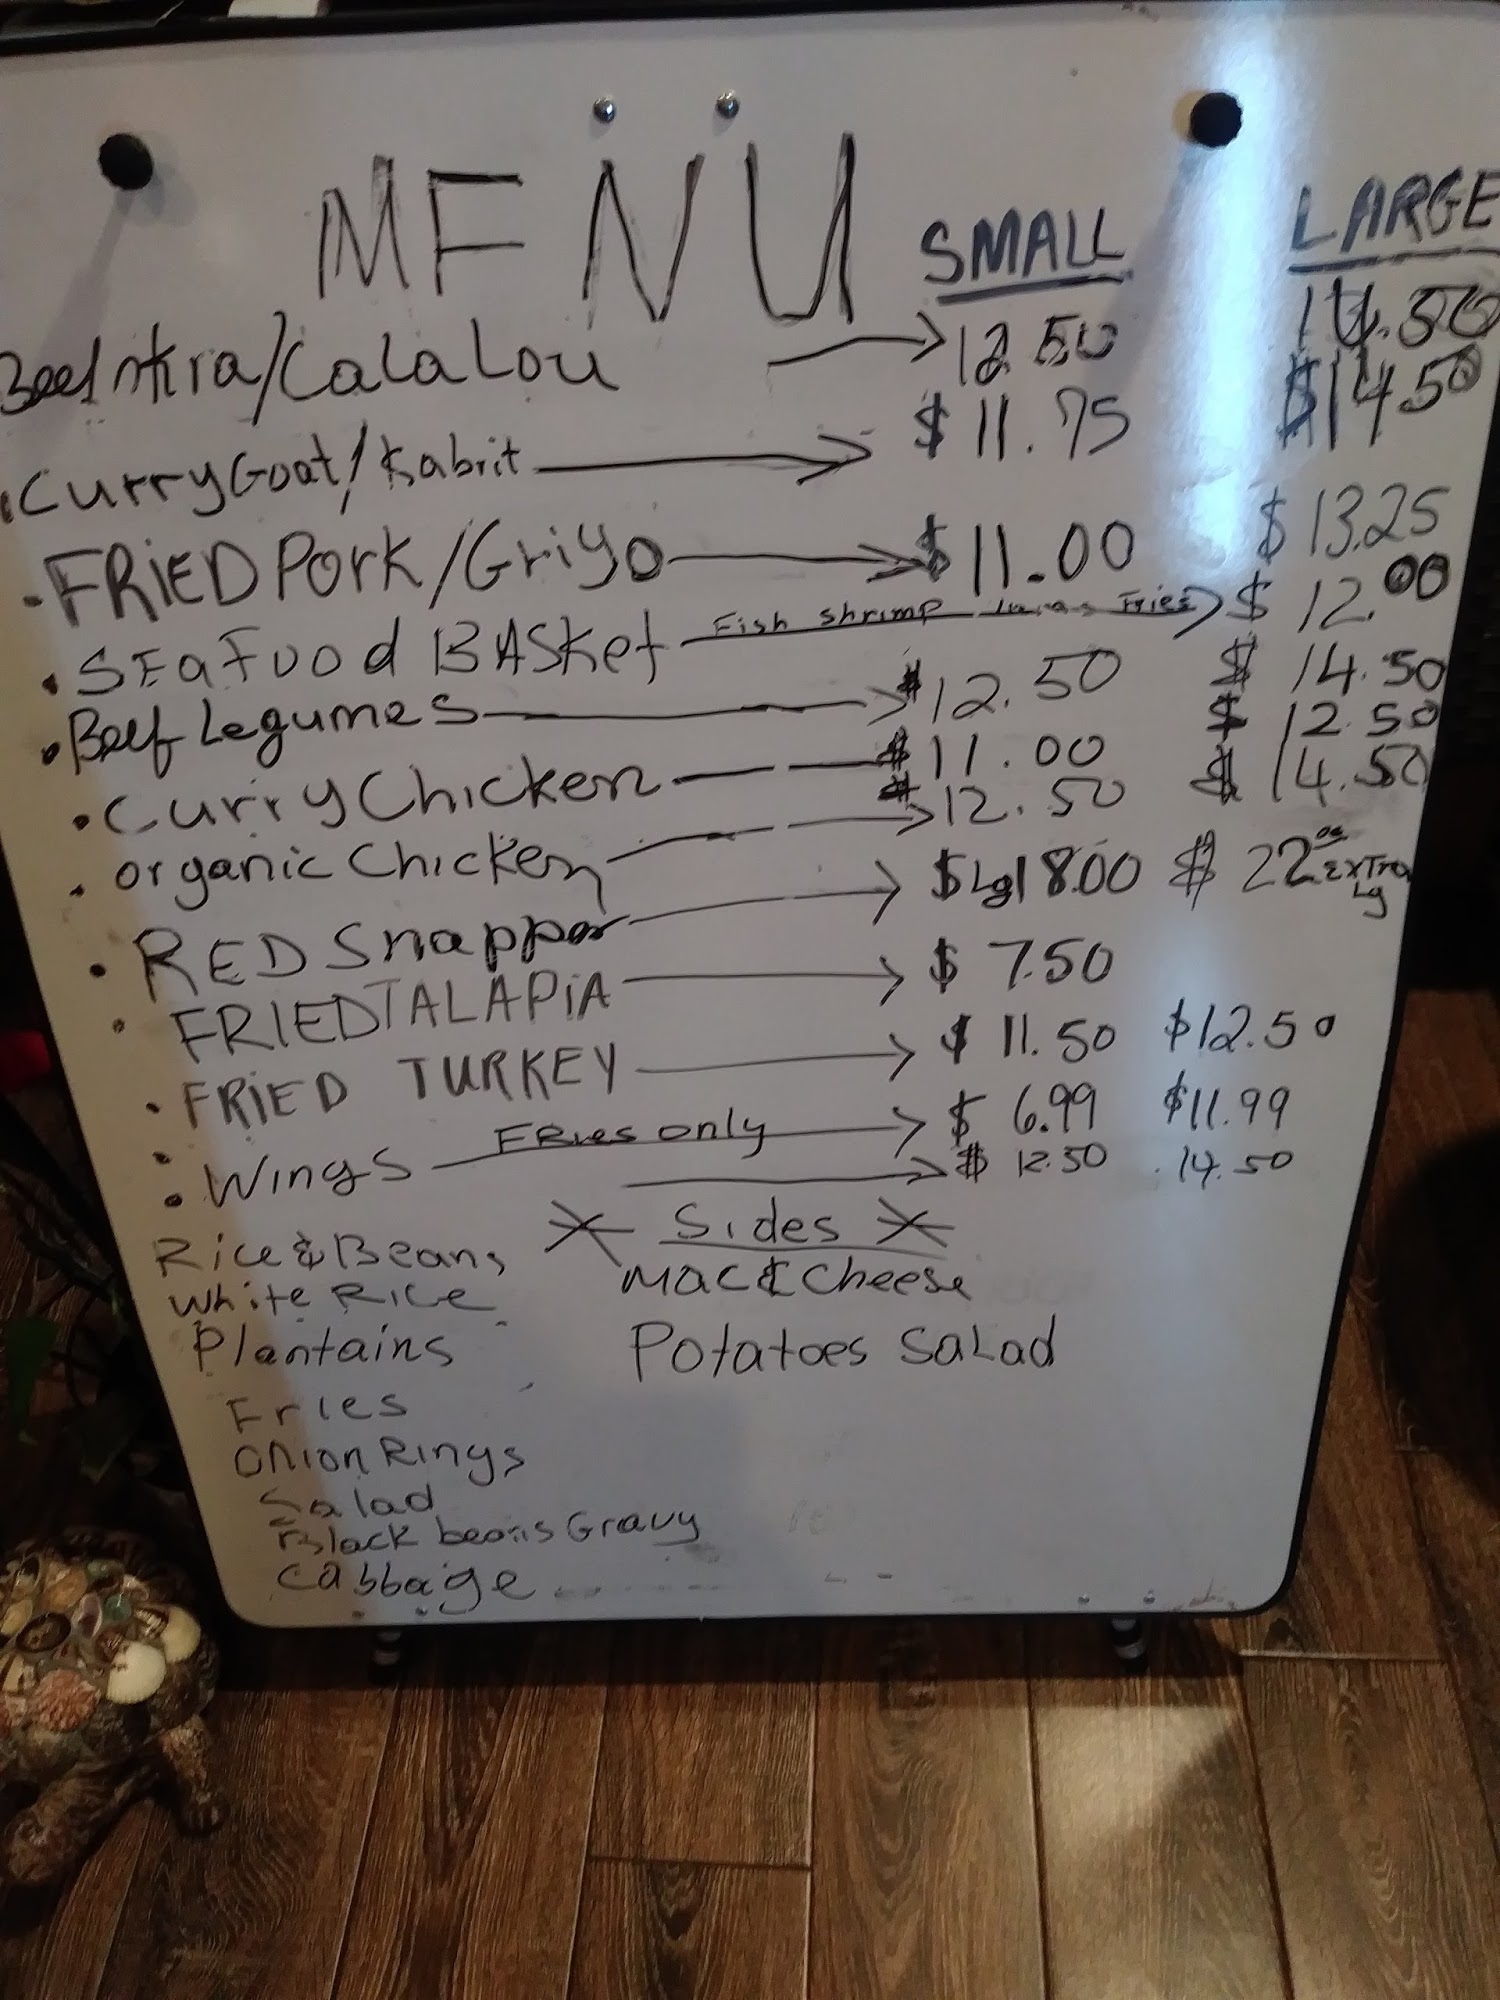 MENU
SMALL LARGE
Beef /CaLaLou 12.50 14.50
CurryGoat/Kabrit $11.75 $14.50
FRiED Pork/Griyo $11.00 $13.25
SEaFood BASket Fish shrimp Fries $12.00
Beef Legumes $12.50 $14.50
Curry Chicken $11.00 $12.50
organic Chicken $12.50 $14.50
RED Snapper $Lg18.00 $22.00 ExTra Lg
FRIED TALAPiA $7.50
FRiED TURKEY $11.50 $12.50
Wings FRies only $6.99 $11.99
$12.50 14.50
Sides
Rice & Beans
White Rice
Plantains
Fries
Onion Rings
Salad
Black beans Gravy
Cabbage
Mac & Cheese
Potatoes SaLad